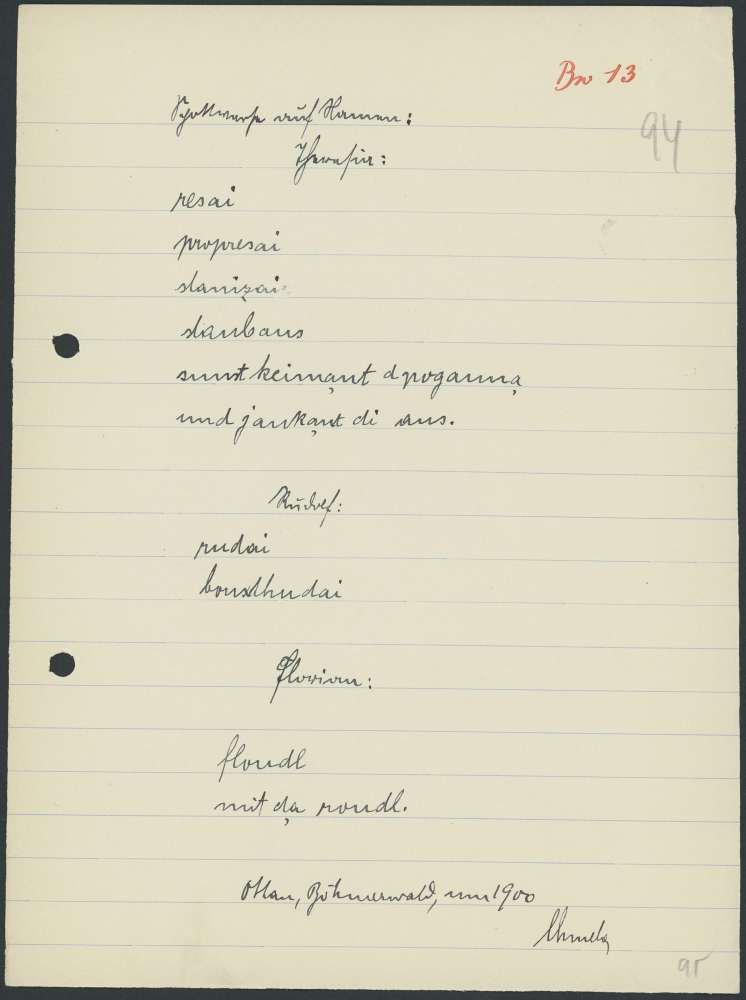 Bw 13
94
Spottverse auf Namen:
Theresia:
resai
propresai
stanizai
staubaus
sunst keimạnt d pogannạ
und jaukạnt di aus.
Rudolf:
rudai
bousthudai
Florian:
floudl
mit dạ roudl.
Ottau, Böhmerwald, um 1900
95